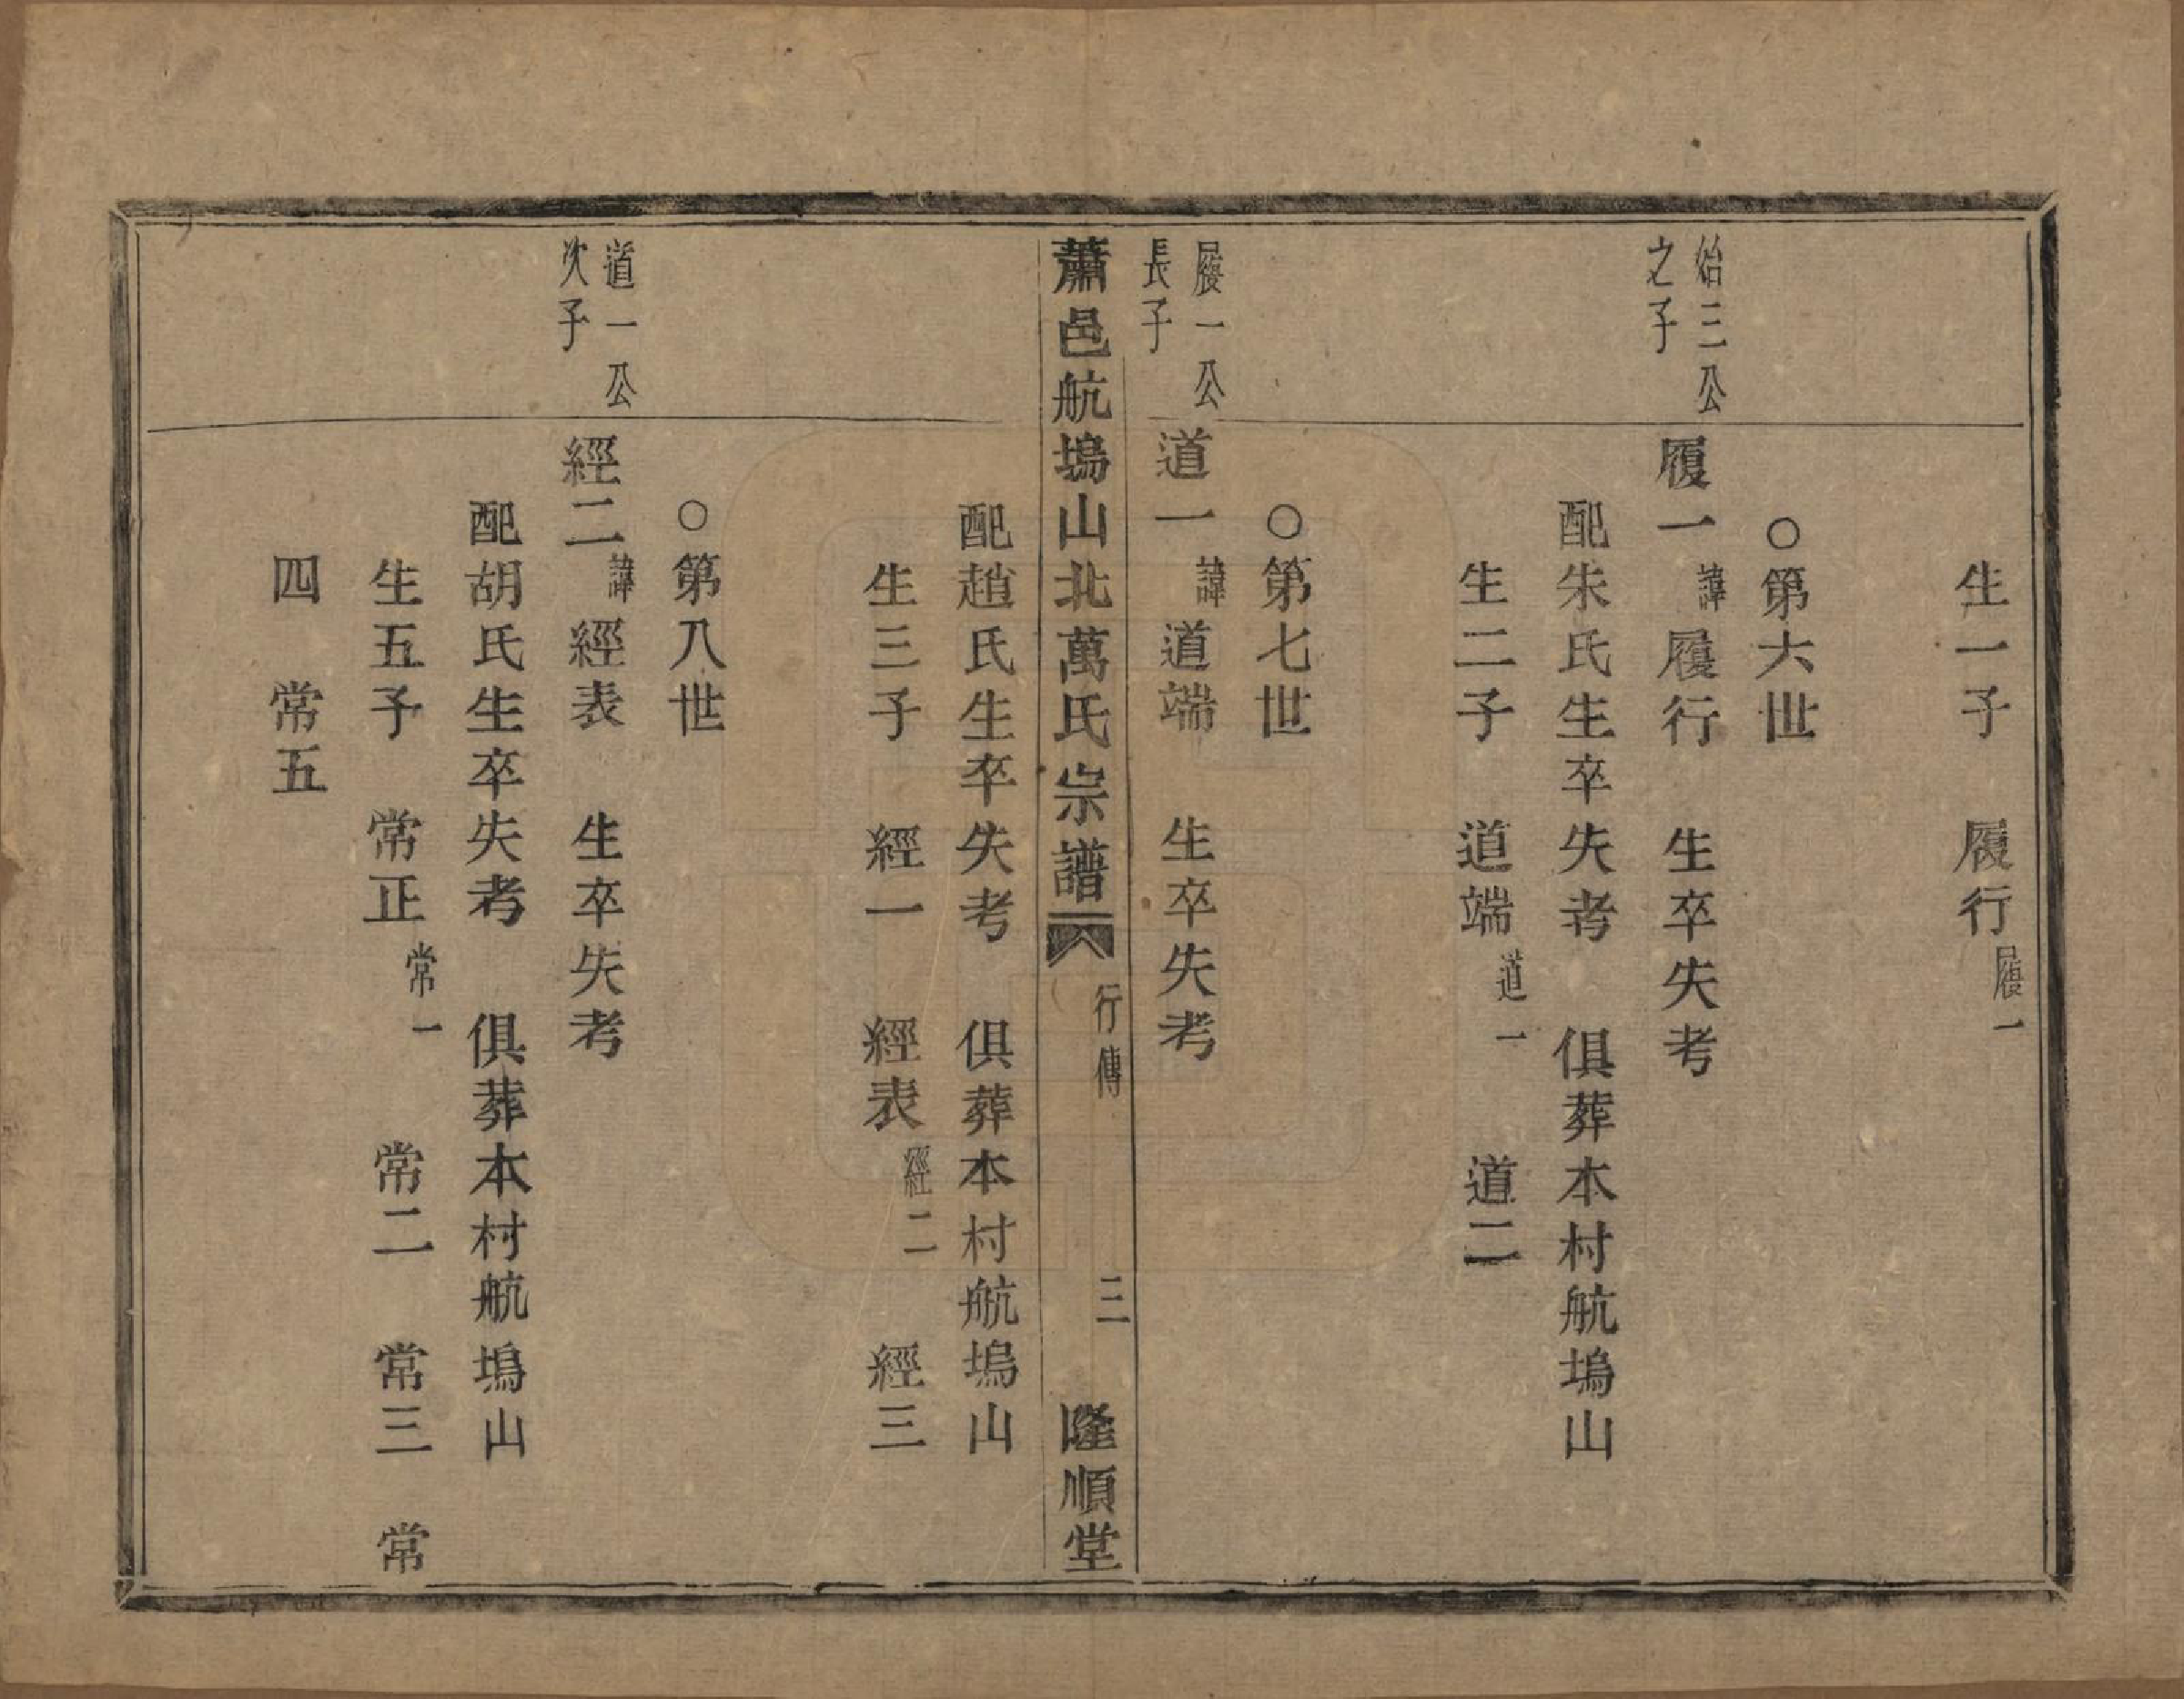 生一子　履行履一
○第六世
始三公
之子
履一諱履行　生卒失考
配朱氏生卒失考　俱葬本村航塢山
生二子　道端道一　道二
○第七世
履一公
長子
道一諱道端　生卒失考
蕭邑航塢山北萬氏宗譜　行傳　三　隆順堂
配趙氏生卒失考　俱葬本村航塢山
生三子　經一　經表經二　經三
○第八世
道一公
次子
經二諱經表　生卒失考
配胡氏生卒失考　俱葬本村航塢山
生五子　常正常一　常二　常三　常
四　常五